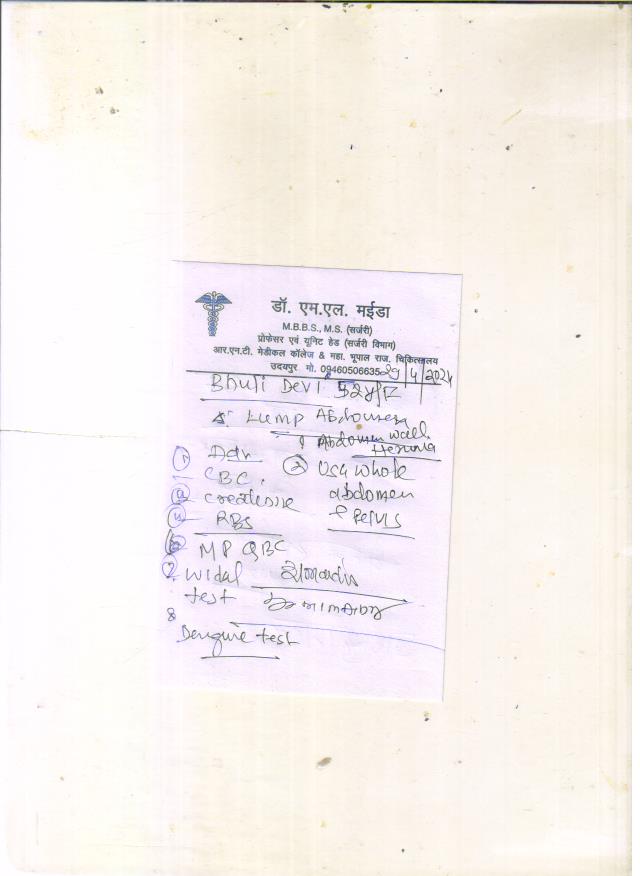 डॉ. एम.एल. मईडा
M.B.B.S., M.S. (सर्जरी)
प्रोफेसर एवं यूनिट हेड (सर्जरी विभाग)
आर.एन.टी. मेडीकल कॉलेज & महा. भूपाल राज. चिकित्सालय
उदयपुर मो. 09460506635 29/4/2024
Bhuli Devi 52y/F
Lump Abdomen
? Abdomen wall
Hernia
1 Adv
CBC.
Creatinine
RBS
2 USG whole
abdomen
+ Pelvis
6 MP QBC
7 Widal
test
8
Dengue test